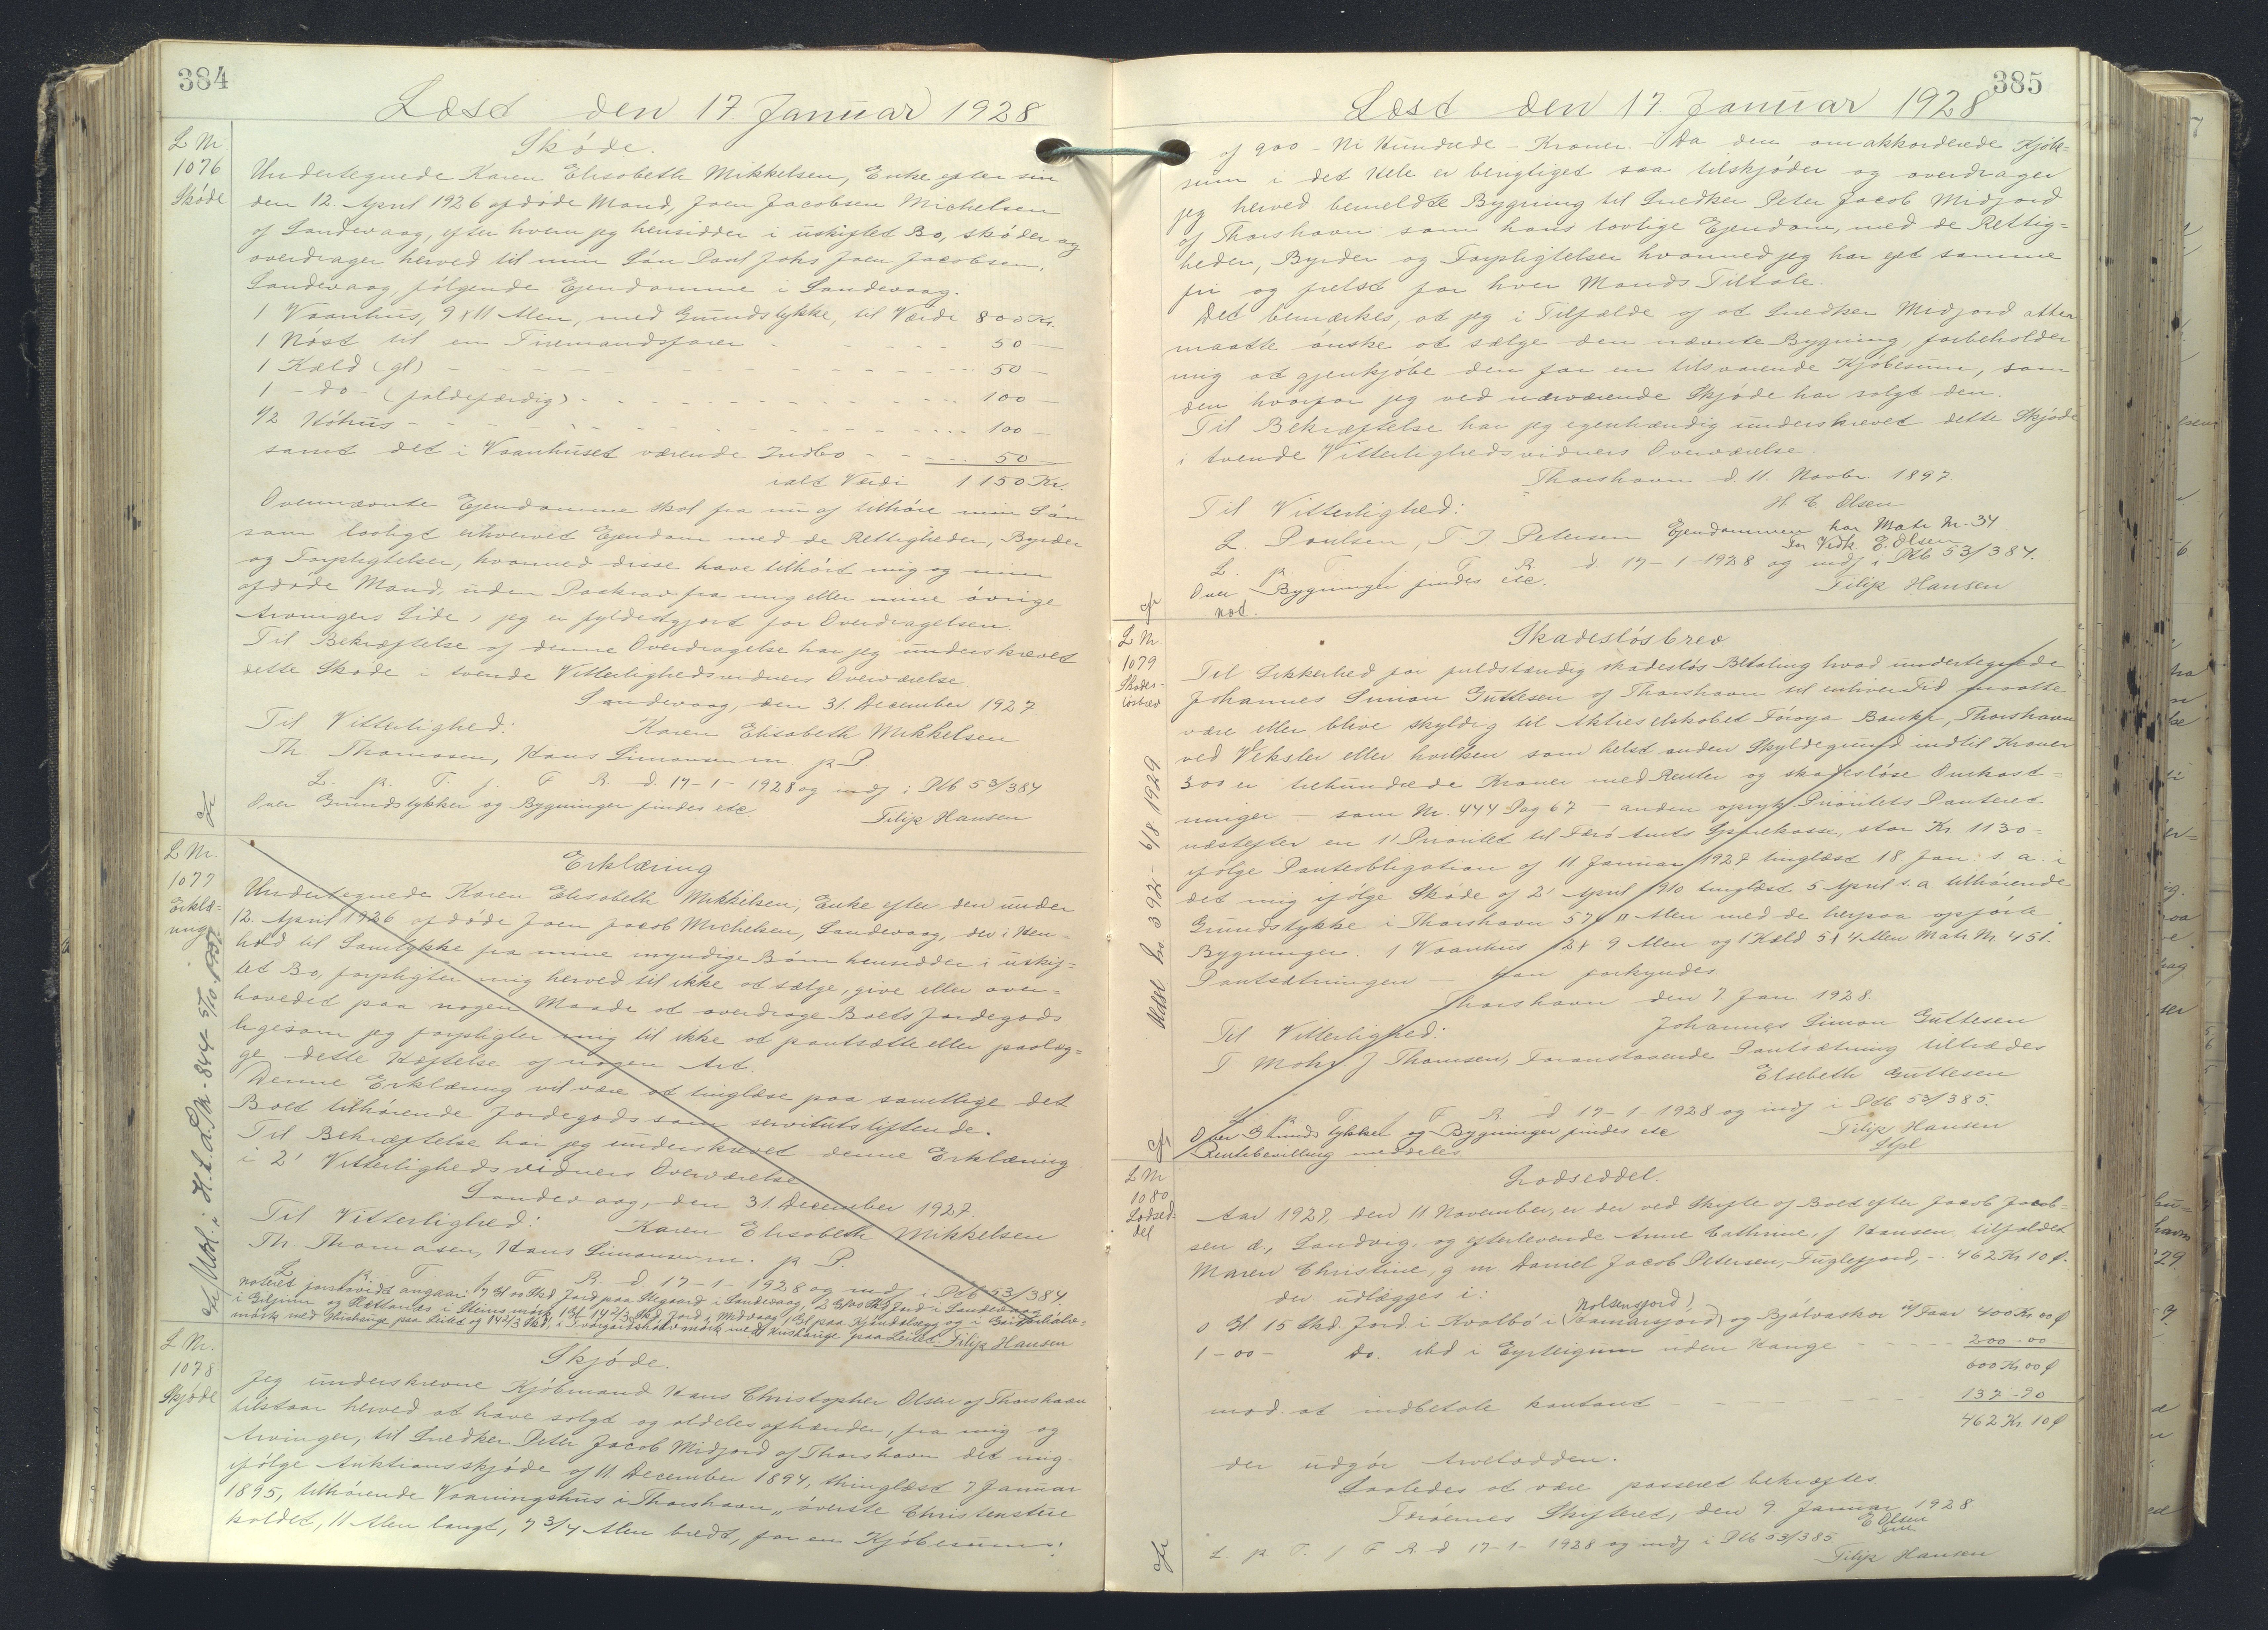 384
Læst den 17 Januar 1928
L Nr.
1076
Skøde
Skøde.
Undertegnede Karen Elisabeth Mikkelsen, Enke efter sin
den 12. April 1926 afdøde Mand, Joen Jacobsen Michelsen
af Sandevaag, efter hvem jeg hensidder i uskiftet Bo, skøder og
overdrager herved til min Søn Poul Johs Joen Jacobsen,
Sandevaag, følgende Ejendomme i Sandevaag:
1 Vaanhus, 9 x 11 Alen, med Grundstykke, til Værdi 800 Kr.
1 Nøst til en Tiremandsfarer - - - - - 50 -
1 Kæld (gl) - - - - - 50 -
1 - do - (foldefærdig) - - - - - 100 -
1/2 Kóhus - - - - - 100 -
samt det i Vaanhuset værende Indbo - - - 50 -
ialt Værdi 1150 Kr.
Ovennævnte Ejendomme skal fra nu af tilhøre min Søn
som lovligt erhvervet Ejendom med de Rettigheder, Byrder
og Forpligtelser, hvormed disse have tilhørt mig og min
afdøde Mand, uden Paakrav fra mig eller mine øvrige
Arvingers Side, jeg er fyldestgjort for Overdragelsen.
Til Bekræftelse af denne Overdragelse har jeg underskrevet
dette Skøde i tvende Vitterlighedsvidners Overværelse
Sandevaag, den 31. December 1927
Til Vitterlighed: Karen Elisabeth Mikkelsen
Th Thomasen, Hans Simonsen m. p. P.
L. p. T. f. F R. d. 17-1-1928 og indf i Ptb 53/384
Over Grundstykker og Bygninger findes etc. Filip Hansen
cfr
L Nr.
1077
Erklæ-
ring
Erklæring
Undertegnede Karen Elisabeth Mikkelsen, Enke efter den under
12. April 1926 afdøde Joen Jacob Michelsen, Sandevaag, der i Hen-
hold til Samtykke fra mine myndige Børn hensidder i uskif-
tet Bo, forpligter mig herved til ikke at sælge, give eller over-
hovedet paa nogen Maade at overdrage Boets Jordegods
ligesom jeg forpligter mig til ikke at pantsætte eller paalæg-
ge dette Hæftelse af nogen Art.
Denne Erklæring vil være at tinglæse paa samtlige det
Boet tilhørende Jordegods som servitutstiftende.
Til Bekræftelse har jeg underskrevet denne Erklæring
i 2' Vitterlighedsvidners Overværelse
Sandevaag, den 31. December 1927.
Til Vitterlighed: Karen Elisabeth Mikkelsen
Th Thomasen, Hans Simonsen m. p. P.
L. p. T. f. F. R. d. 17-1-1928 og indf i Ptb 53/384.
noteret forsaavidt angaar: 7 Gl 00 Skd Jord paa Ilegaard i Sandevaag, 2 Gl 00 Skd Jord i Sandevaag
1 Gl 14 2/3 Skd. Jord i Midvaag
mark med Hushauge paa Leitet Filip Hansen
L Nr.
1078
Skjøde
Skjøde.
Jeg underskrevne Kjøbmand Hans Christopher Olsen af Thorshavn
tilstaar herved at have solgt og aldeles afhænder, fra mig og
Arvinger, til Snedker Peter Jacob Midjord af Thorshavn det mig
ifølge Auktionsskjøde af 11. December 1894, thinglæst 7 Januar
1895, tilhørende Vaaningshus i Thorshavn „øverste Christenstue
kaldet, 11 Alen langt, 7 3/4 Alen bredt, for en Kjøbesum
385
Læst den 17. Januar 1928
af 900 - Ni Hundrede - Kroner. - Da den omakkorderede Kjøbe-
sum i det Hele er berigtiget saa tilskjøder og overdrager
jeg herved bemeldte Bygning til Snedker Peter Jacob Midjord
af Thorshavn som hans lovlige Ejendom, med de Rettig-
heder, Byrder og Forpligtelser hvormed jeg har ejet samme
fri og frelst for hver Mands Tiltale.
Det bemærkes, at jeg i Tilfælde af at Snedker Midjord atter
maatte ønske at sælge den nævnte Bygning, forbeholder
mig at gjenkjøbe den for en tilsvarende Kjøbesum, som
den hvorfor jeg ved nærværende Skjøde har solgt den.
Til Bekræftelse har jeg egenhændig underskrevet dette Skjøde
i tvende Vitterlighedsvidners Overværelse.
Thorshavn d. 11. Novbr. 1897.
Til Vitterlighed: H C Olsen
L. Poulsen, T I Petersen Ejendommen har Matr Nr. 34
For Vedk. E. Olsen
L. p. T. f. F R d 17-1-1928 og indf i Ptb 53/384.
Over Bygninger findes etc. Filip Hansen
not.
cfr
L Nr.
1079
Skades-
løsbrev
Skadesløsbrev
Til Sikkerhed for fuldstændig skadesløs Betaling hvad undertegnede
Johannes Simon Guttesen af Thorshavn til enhver Tid maatte
være eller blive skyldig til Aktieselskabet Føroya Banki, Thorshavn
ved Veksler eller hvilken som helst anden Skyldegrund indtil Kroner
300 er trehundrede Kroner med Renter og skadesløse Omkost-
ninger - som Nr. 444 Pag 67 - anden oprykk. Prioritets Panteret
næstefter en 1' Prioritet til Færø Amts Sparekasse, stor Kr 1130 -
ifølge Panteobligation af 11 Januar 1927 tinglæst 18 Jan. s. a. i
det mig ifølge Skøde af 2' April 1910 tinglæst 5 April s. a tilhørende
Grundstykke i Thorshavn 57 □ Alen med de herpaa opførte
Bygninger. 1 Vaanhus 12 x 9 Alen og 1 Kæld 5 x 4 Alen Matr Nr 451.
Pantsætningen - kan forkyndes
Thorshavn den 7 Jan. 1928.
Til Vitterlighed: Johannes Simon Guttesen
T Mohr J Thomsen, Foranstaaende Pantsætning tiltrædes
Elsebeth Guttesen
L. p. T. f. F R d 17-1-1928 og indf i Ptb 53/385.
Over Grundstykket og Bygninger findes etc Filip Hansen
Rentebevilling meddeles
cfr
L Nr
1080
Lodsed-
del
Lodseddel.
Aar 1927, den 11 November, er der ved Skifte af Boet efter Jacob Jacob-
sen d., Sandvig, og efterlevende Anne Cathrine, f Hansen, tilfaldet
Maren Christine, g m Daniel Jacob Petersen, Fuglefjord, - 462 Kr 10 ø.
der udlægges i:
Nolsensjord,
0 Gl 15 Skd. Jord i Kvalbø i (Hamarsjord) og 400 Kr 00 ø
1 - 00 - do. ibd i Eyrteigum uden Hauge - - - 200 - 00
600 Kr 00 ø
mod at indbetale kontant - - - 137 - 90
462 Kr. 10 ø
der udgør Arvelodden.
Saaledes at være passeret bekræftes
Færøernes Skifteret, den 9 Januar 1928
E Olsen
L. p. T. f F R. d 17-1-1928 og indf i Ptb 53/385
Filip Hansen
cfr